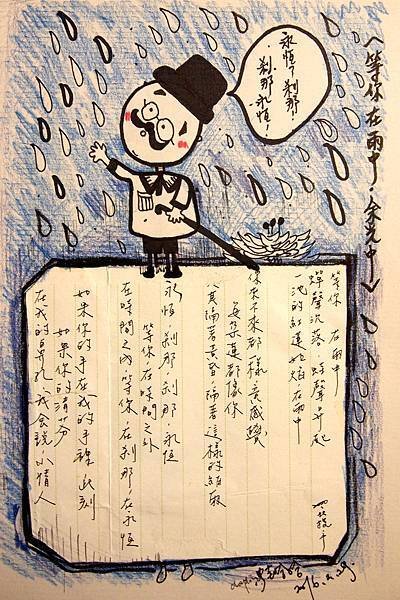 〈等你在雨中.余光中〉
永恆?剎那!
剎那.永恆!
等你 在雨中
蟬聲沉落.蛙聲昇起
一池的紅蓮如焰 在雨中
你來不來都一樣.竟感覺
每朵蓮都像你
尤其隔著黃昏.隔著這樣的細雨
永恆.剎那.剎那.永恆
等你.在時間之外
在時間之內.等你.在剎那.在永恆
如果你的手在我的手裡.此刻
如果你的清芬
在我的鼻孔.我會說.小情人
2016.2.29.